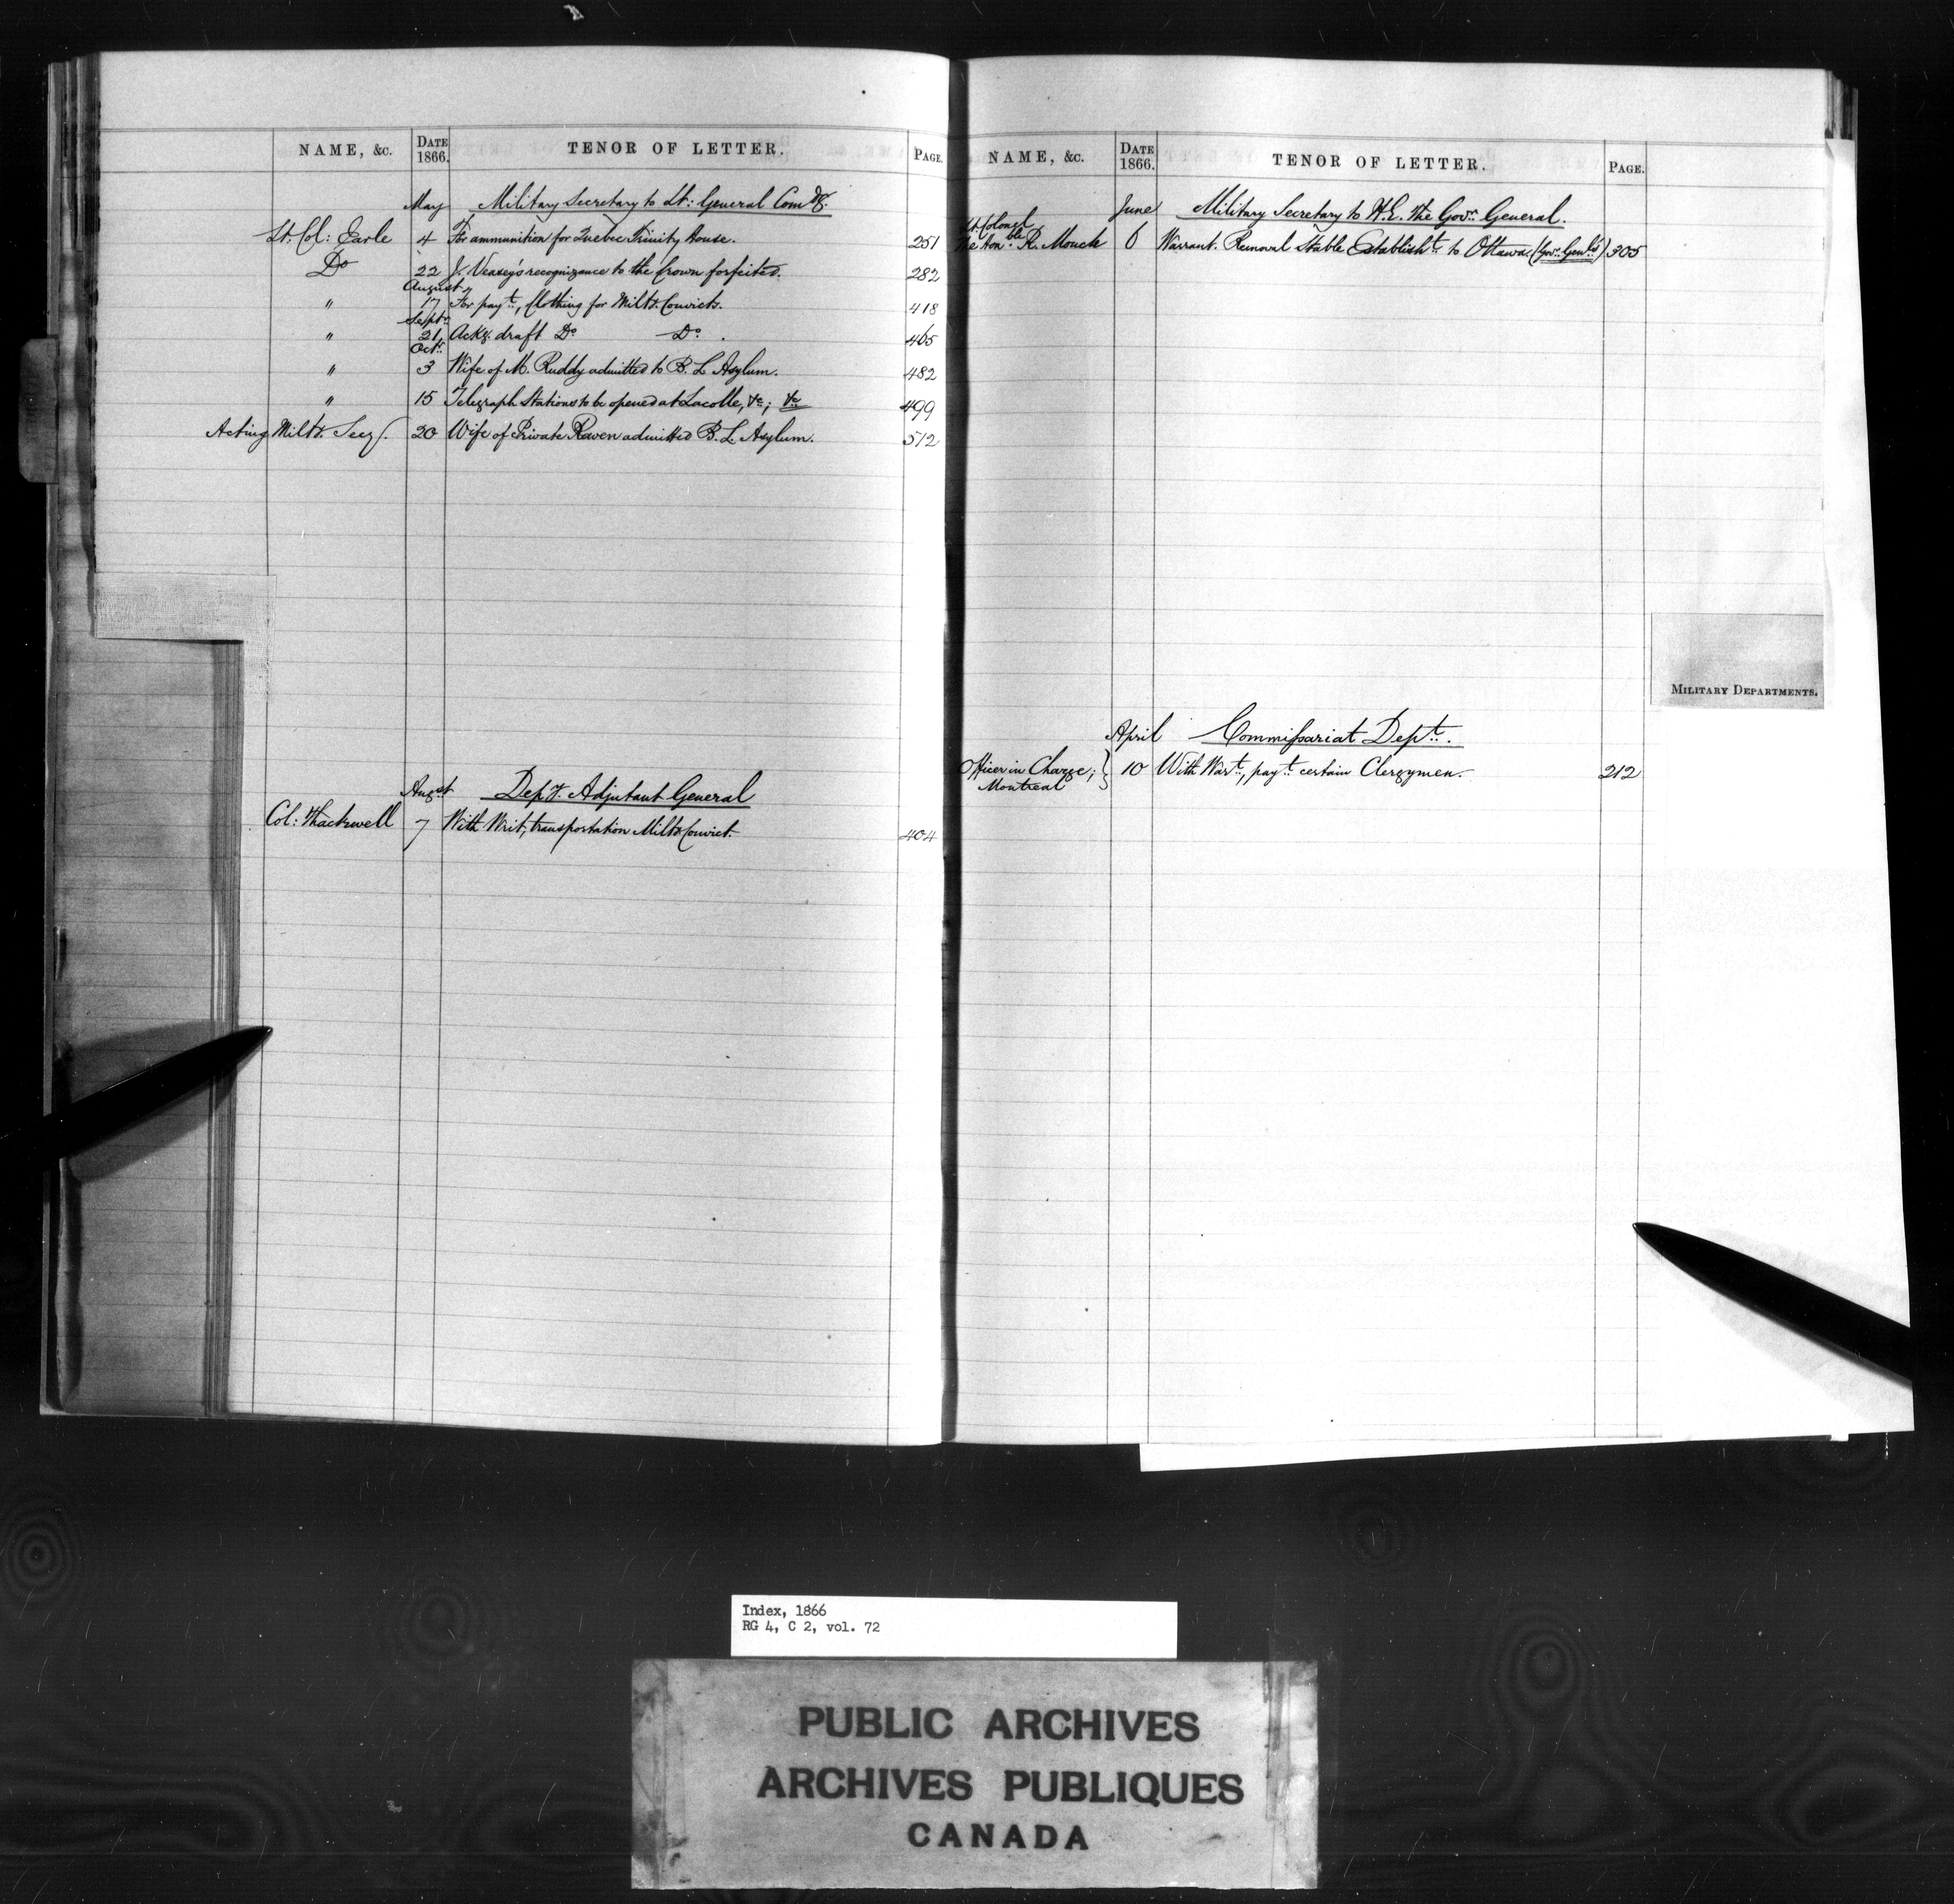 NAME, &c. DATE 1866. TENOR OF LETTER. PAGE.
May Military Secretary to Lt: General Comdg.
Lt. Col: Earle 4 For ammunition for Quebec Trinity House. 251
Do 22 J. Veasey's recognizance to the Crown forfeited. 282
August
" 17 For payt, Clothing for Milty. Convicts. 418
Septr
" 21 Ackg. draft Do Do. 465
Octr
" 3 Wife of M. Ruddy admitted to B. L Asylum. 482
" 15 Telegraph Stations to be opened at Lacolle, &c; &c 499
Acting Milty. Secy. 20 Wife of Private Raven admitted B. L. Asylum. 512
August Depy. Adjutant General
Col: Thackwell 7 With Writ, transportation Milty Convict. 404
NAME, &c. DATE 1866. TENOR OF LETTER. PAGE.
June Military Secretary to H.E. the Govr. General.
Lt Colonel
The Honble R. Monck 6 Warrant. Removal Stable Establisht to Ottawa (Govr. Genl's) 305
MILITARY DEPARTMENTS.
April Commissariat Dept.
Officer in Charge; } 10 With Wart, payt certain Clergymen. 212
Montreal
Index, 1866
RG 4, C 2, vol. 72
PUBLIC ARCHIVES
ARCHIVES PUBLIQUES
CANADA